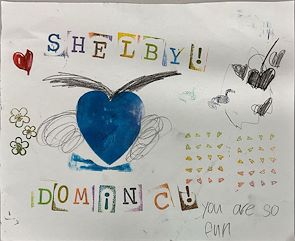 SHELBY!
DOMiNC!
you are so
fun